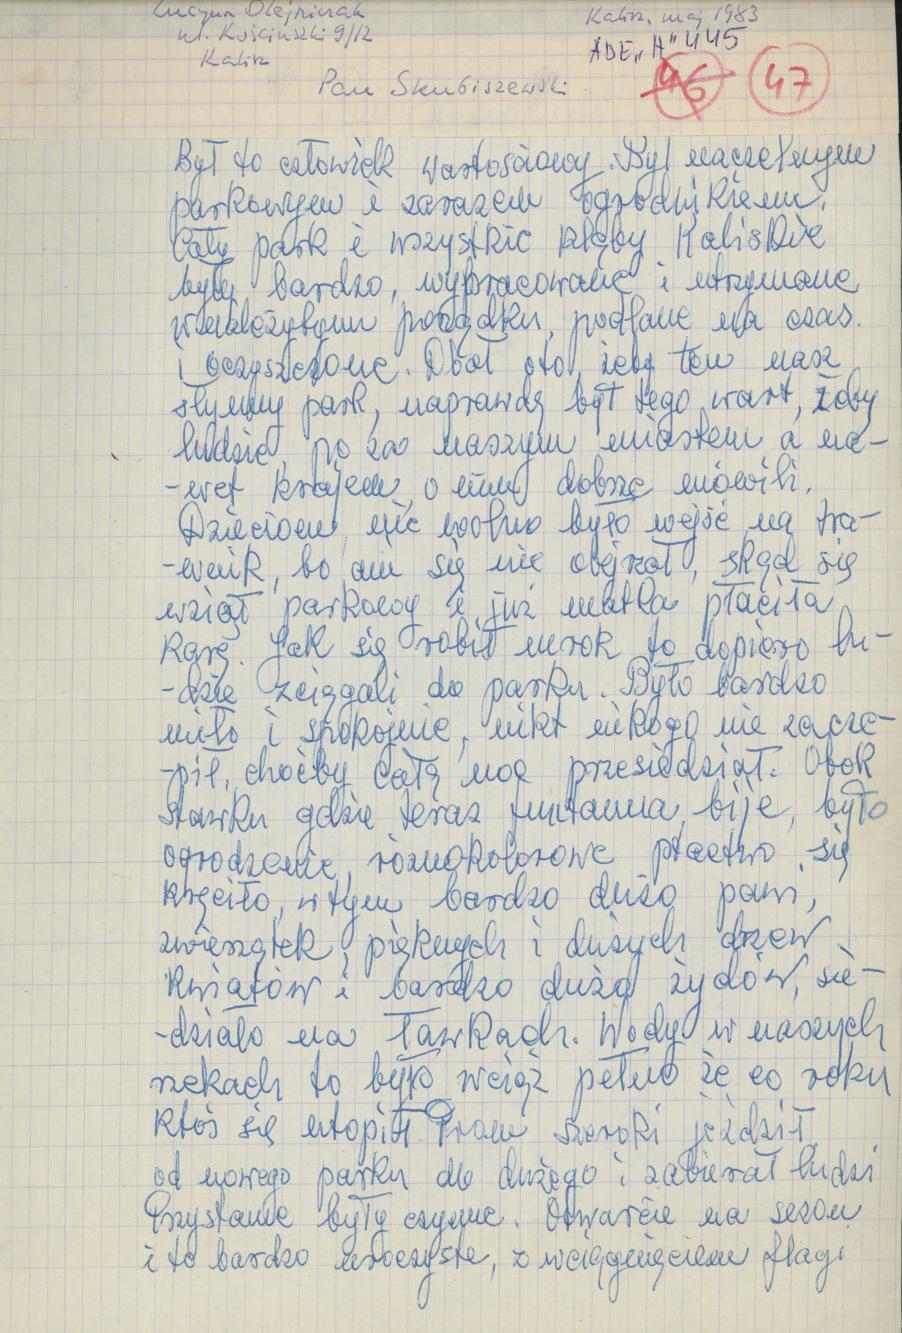 Lucyna Olejniczak
ul. Kościuszki 9/12
Kalisz
Kalisz, maj 1983
ADE „A" 445
46
47
Pan Skubiszewski
Był to człowiek wartościowy. Był naczelnym
parkowym i zarazem ogrodnikiem.
Cały park i wszystkie klęby Kaliskie
były bardzo, wypracowane i utrzymane
w należytym porządku, podlane na czas.
i oczyszczone. Dbał oto, żeby ten nasz
słynny park, naprawdę był tego wart, żeby
ludzie, po za naszym miastem a na-
-wet krajem, o nim dobrze mówili.
Dzieciom, nie wolno było wejść na tra-
-wnik, bo ani się nie obejrzał, skąd się
wziął parkowy i już matka płaciła
karę. Jak się robił mrok to dopiero lu-
-dzie zciągali do parku. Było bardzo
miło i spokojnie, nikt nikogo nie zacze-
-pił, choćby całą noc przesiedział. Obok
stawku gdzie teraz funtanna, bije, było
ogrodzenie, różnokolorowe ptactwo się
kręciło, w tym bardzo dużo pawi,
zwierzątek, pięknych i dużych drzew
kwiatów i bardzo dużo żydów, sie-
-działo na ławkach. Wody w naszych
rzekach to było wciąż pełno że co roku
ktoś się utopił. Prom szeroki jeździł
od nowego parku do dużego i zabierał ludzi
Przystanie były czynne. Otwarcie na sezon
i to bardzo uroczyste, z wciągnięciem flagi